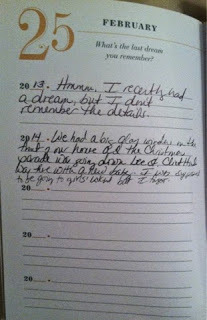 25
FEBRUARY
What's the last dream
you remember?
2013. Hmmm, I recently had
a dream, but I don't
remember the details.
2014. We had a big glass window in the
front of our home and the Christmas
parade was going down Lee St.
was there with a new baby. I was supposed
to be going to girls' weekend but I forgot.
20
20
20